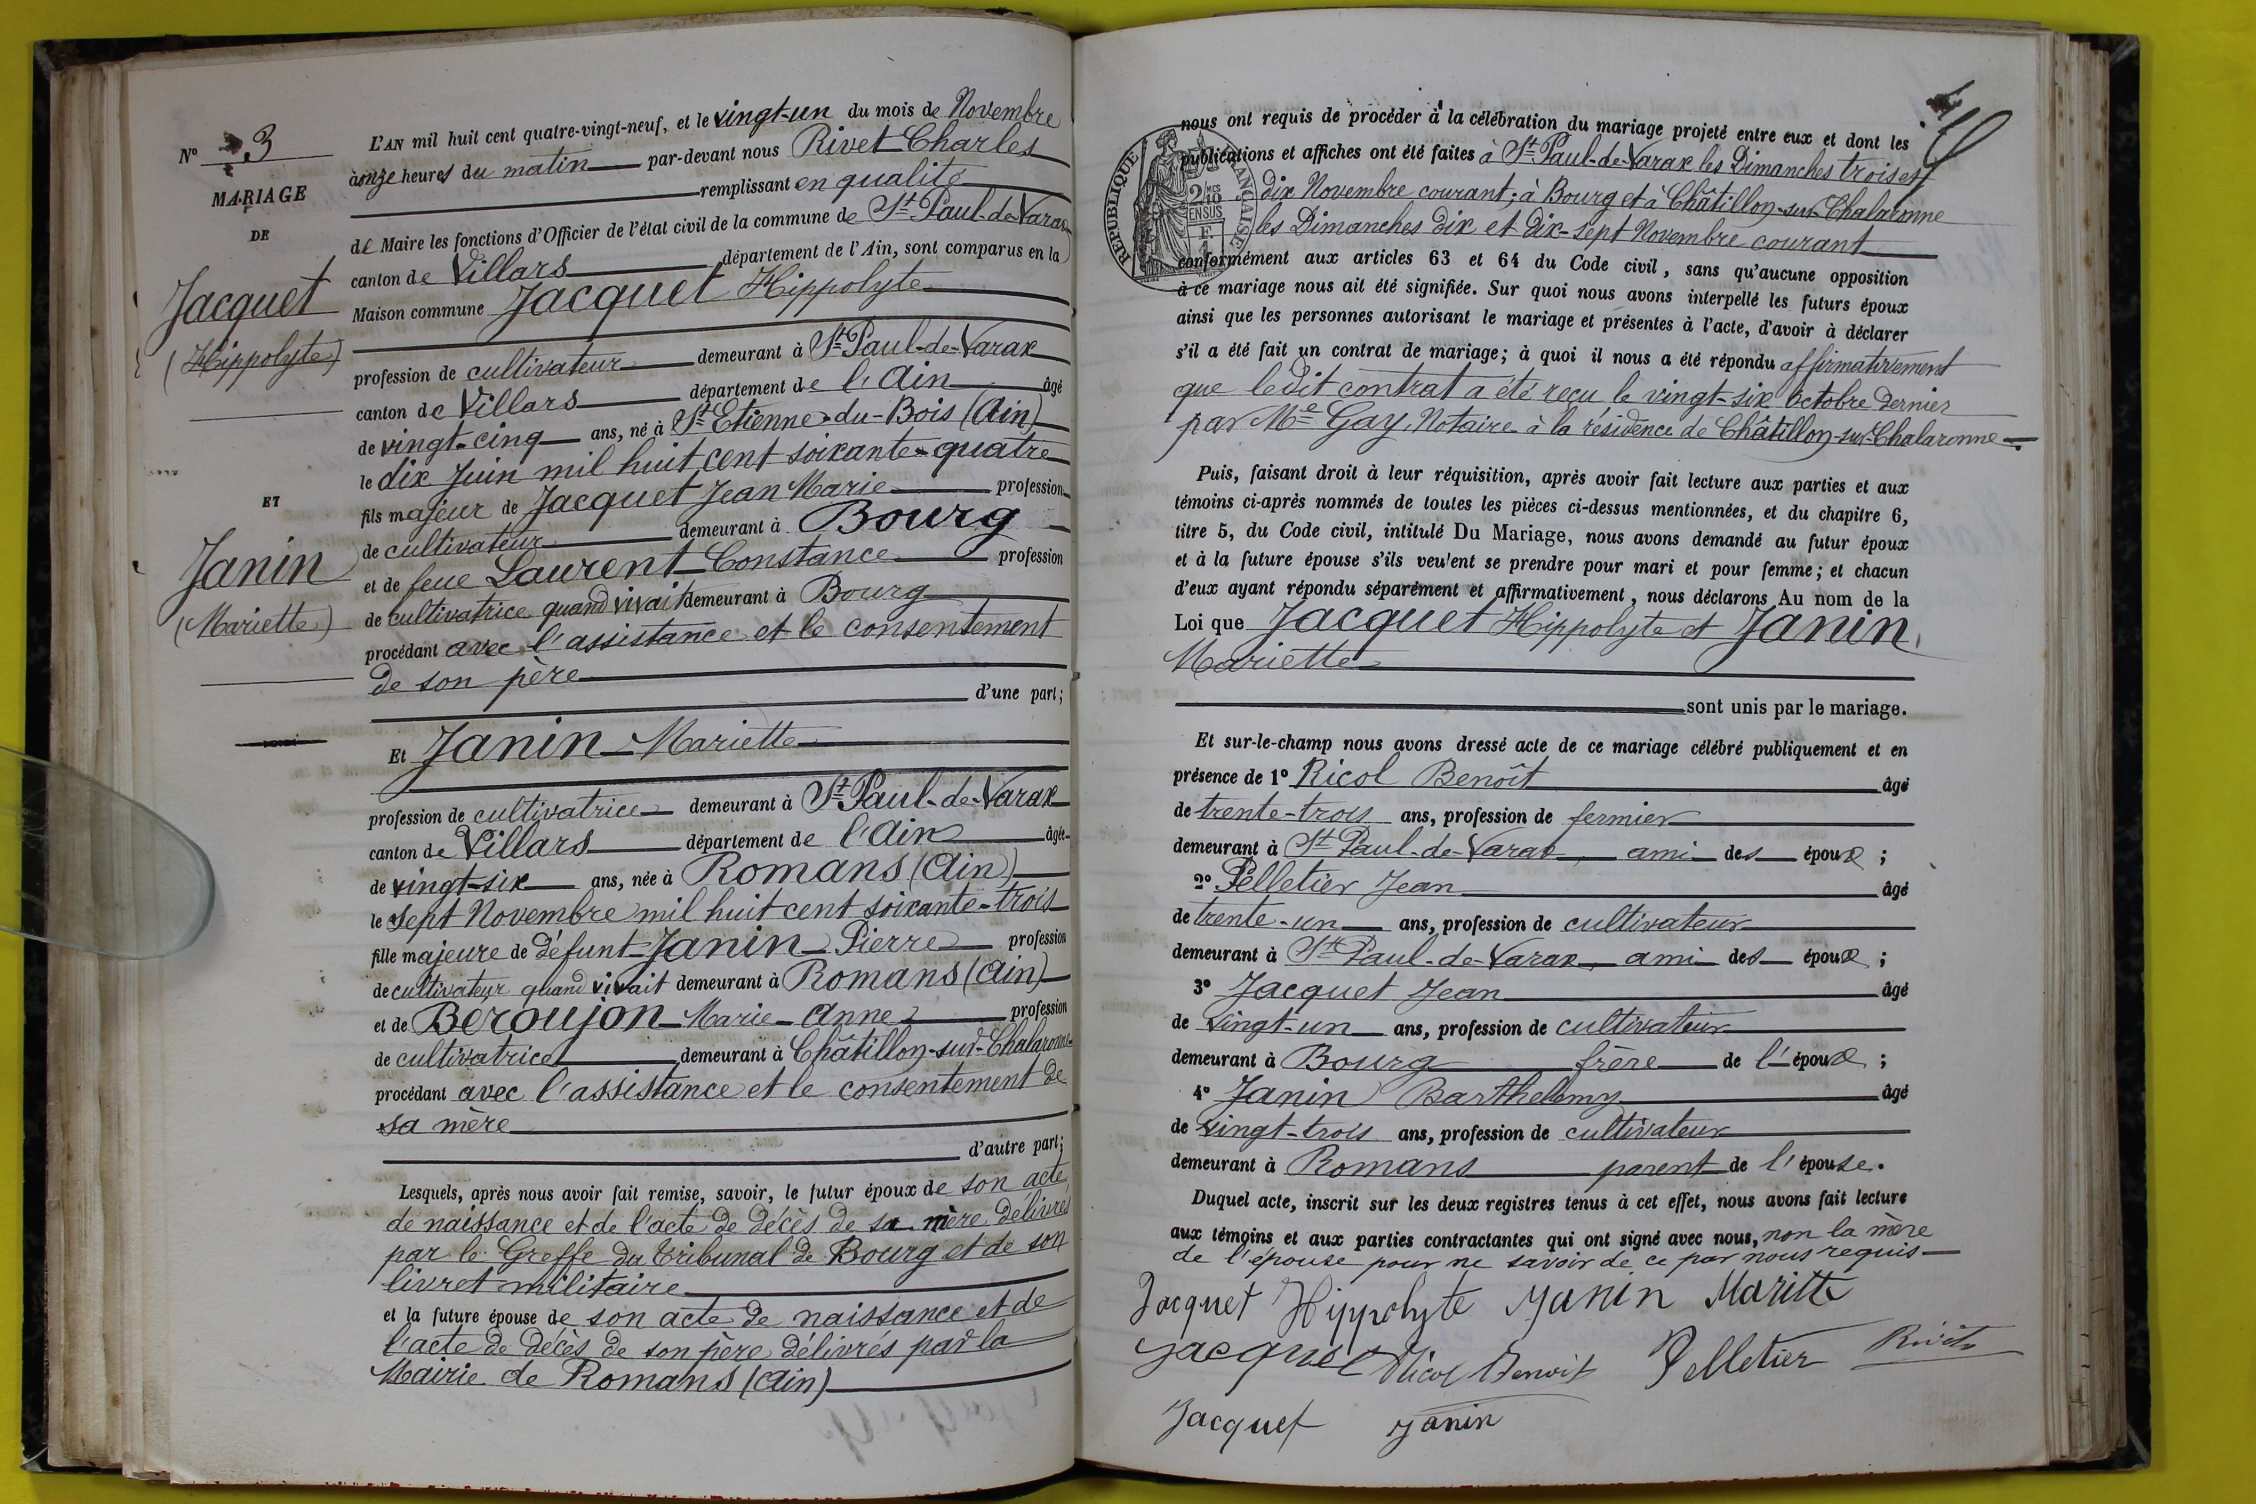 N° 3
MARIAGE
DE
Jacquet
(Hippolyte)
ET
Janin
(Mariette)
L'AN mil huit cent quatre-vingt-neuf, et le vingt-un du mois de Novembre
à onze heures du matin par-devant nous Rivet Charles
remplissant en qualité
de Maire les fonctions d'Officier de l'état civil de la commune de St Paul-de-Varax
canton de Villars département de l'Ain, sont comparus en la
Maison commune Jacquet Hippolyte
profession de cultivateur demeurant à St Paul-de-Varax
canton de Villars département de l'Ain âgé
de vingt-cinq ans, né à St Etienne-du-Bois (Ain)
le dix Juin mil huit cent soixante-quatre
fils majeur de Jacquet Jean Marie profession
de cultivateur demeurant à Bourg
et de feue Laurent Constance profession
de cultivatrice quand vivait demeurant à Bourg
procédant avec l'assistance et le consentement
de son père
d'une part;
Et Janin Mariette
profession de cultivatrice demeurant à St Paul-de-Varax
canton de Villars département de l'Ain âgée
de vingt-six ans, née à Romans (Ain)
le sept Novembre mil huit cent soixante-trois
fille majeure de défunt Janin Pierre profession
de cultivateur quand vivait demeurant à Romans (Ain)
et de Beroujon Marie Anne profession
de cultivatrice demeurant à Châtillon-sur-Chalaronne
procédant avec l'assistance et le consentement de
sa mère
d'autre part;
Lesquels, après nous avoir fait remise, savoir, le futur époux de son acte
de naissance et de l'acte de décès de sa mère délivrés
par le Greffe du Tribunal de Bourg et de son
livret militaire
et la future épouse de son acte de naissance et de
l'acte de décès de son père délivrés par la
Mairie de Romans (Ain)
RÉPUBLIQUE FRANÇAISE
2 10
EN SUS
nous ont requis de procéder à la célébration du mariage projeté entre eux et dont les
publications et affiches ont été faites à St Paul-de-Varax les Dimanches trois et
dix Novembre courant; à Bourg et à Châtillon-sur-Chalaronne
les Dimanches dix et dix-sept Novembre courant
conformément aux articles 63 et 64 du Code civil, sans qu'aucune opposition
à ce mariage nous ait été signifiée. Sur quoi nous avons interpellé les futurs époux
ainsi que les personnes autorisant le mariage et présentes à l'acte, d'avoir à déclarer
s'il a été fait un contrat de mariage; à quoi il nous a été répondu affirmativement
que ledit contrat a été reçu le vingt-six Octobre dernier
par Me Gay, Notaire à la résidence de Châtillon-sur-Chalaronne.
Puis, faisant droit à leur réquisition, après avoir fait lecture aux parties et aux
témoins ci-après nommés de toutes les pièces ci-dessus mentionnées, et du chapitre 6,
titre 5, du Code civil, intitulé Du Mariage, nous avons demandé au futur époux
et à la future épouse s'ils veulent se prendre pour mari et pour femme; et chacun
d'eux ayant répondu séparément et affirmativement, nous déclarons Au nom de la
Loi que Jacquet Hippolyte et Janin
Mariette
sont unis par le mariage.
Et sur-le-champ nous avons dressé acte de ce mariage célébré publiquement et en
présence de 1° Ricol Benoît âgé
de trente-trois ans, profession de fermier
demeurant à St Paul-de-Varax, ami des époux;
2° Pelletier Jean âgé
de trente-un ans, profession de cultivateur
demeurant à St Paul-de-Varax, ami des époux;
3° Jacquet Jean âgé
de vingt-un ans, profession de cultivateur
demeurant à Bourg frère de l'époux;
4° Janin Barthelemy âgé
de vingt-trois ans, profession de cultivateur
demeurant à Romans parent de l'épouse.
Duquel acte, inscrit sur les deux registres tenus à cet effet, nous avons fait lecture
aux témoins et aux parties contractantes qui ont signé avec nous, non la mère
de l'épouse pour ne savoir de ce par nous requis
Jacquet Hippolyte Janin Maritte
Jacquet Ricol Benoit Pelletier Rivet
Jacquet Janin